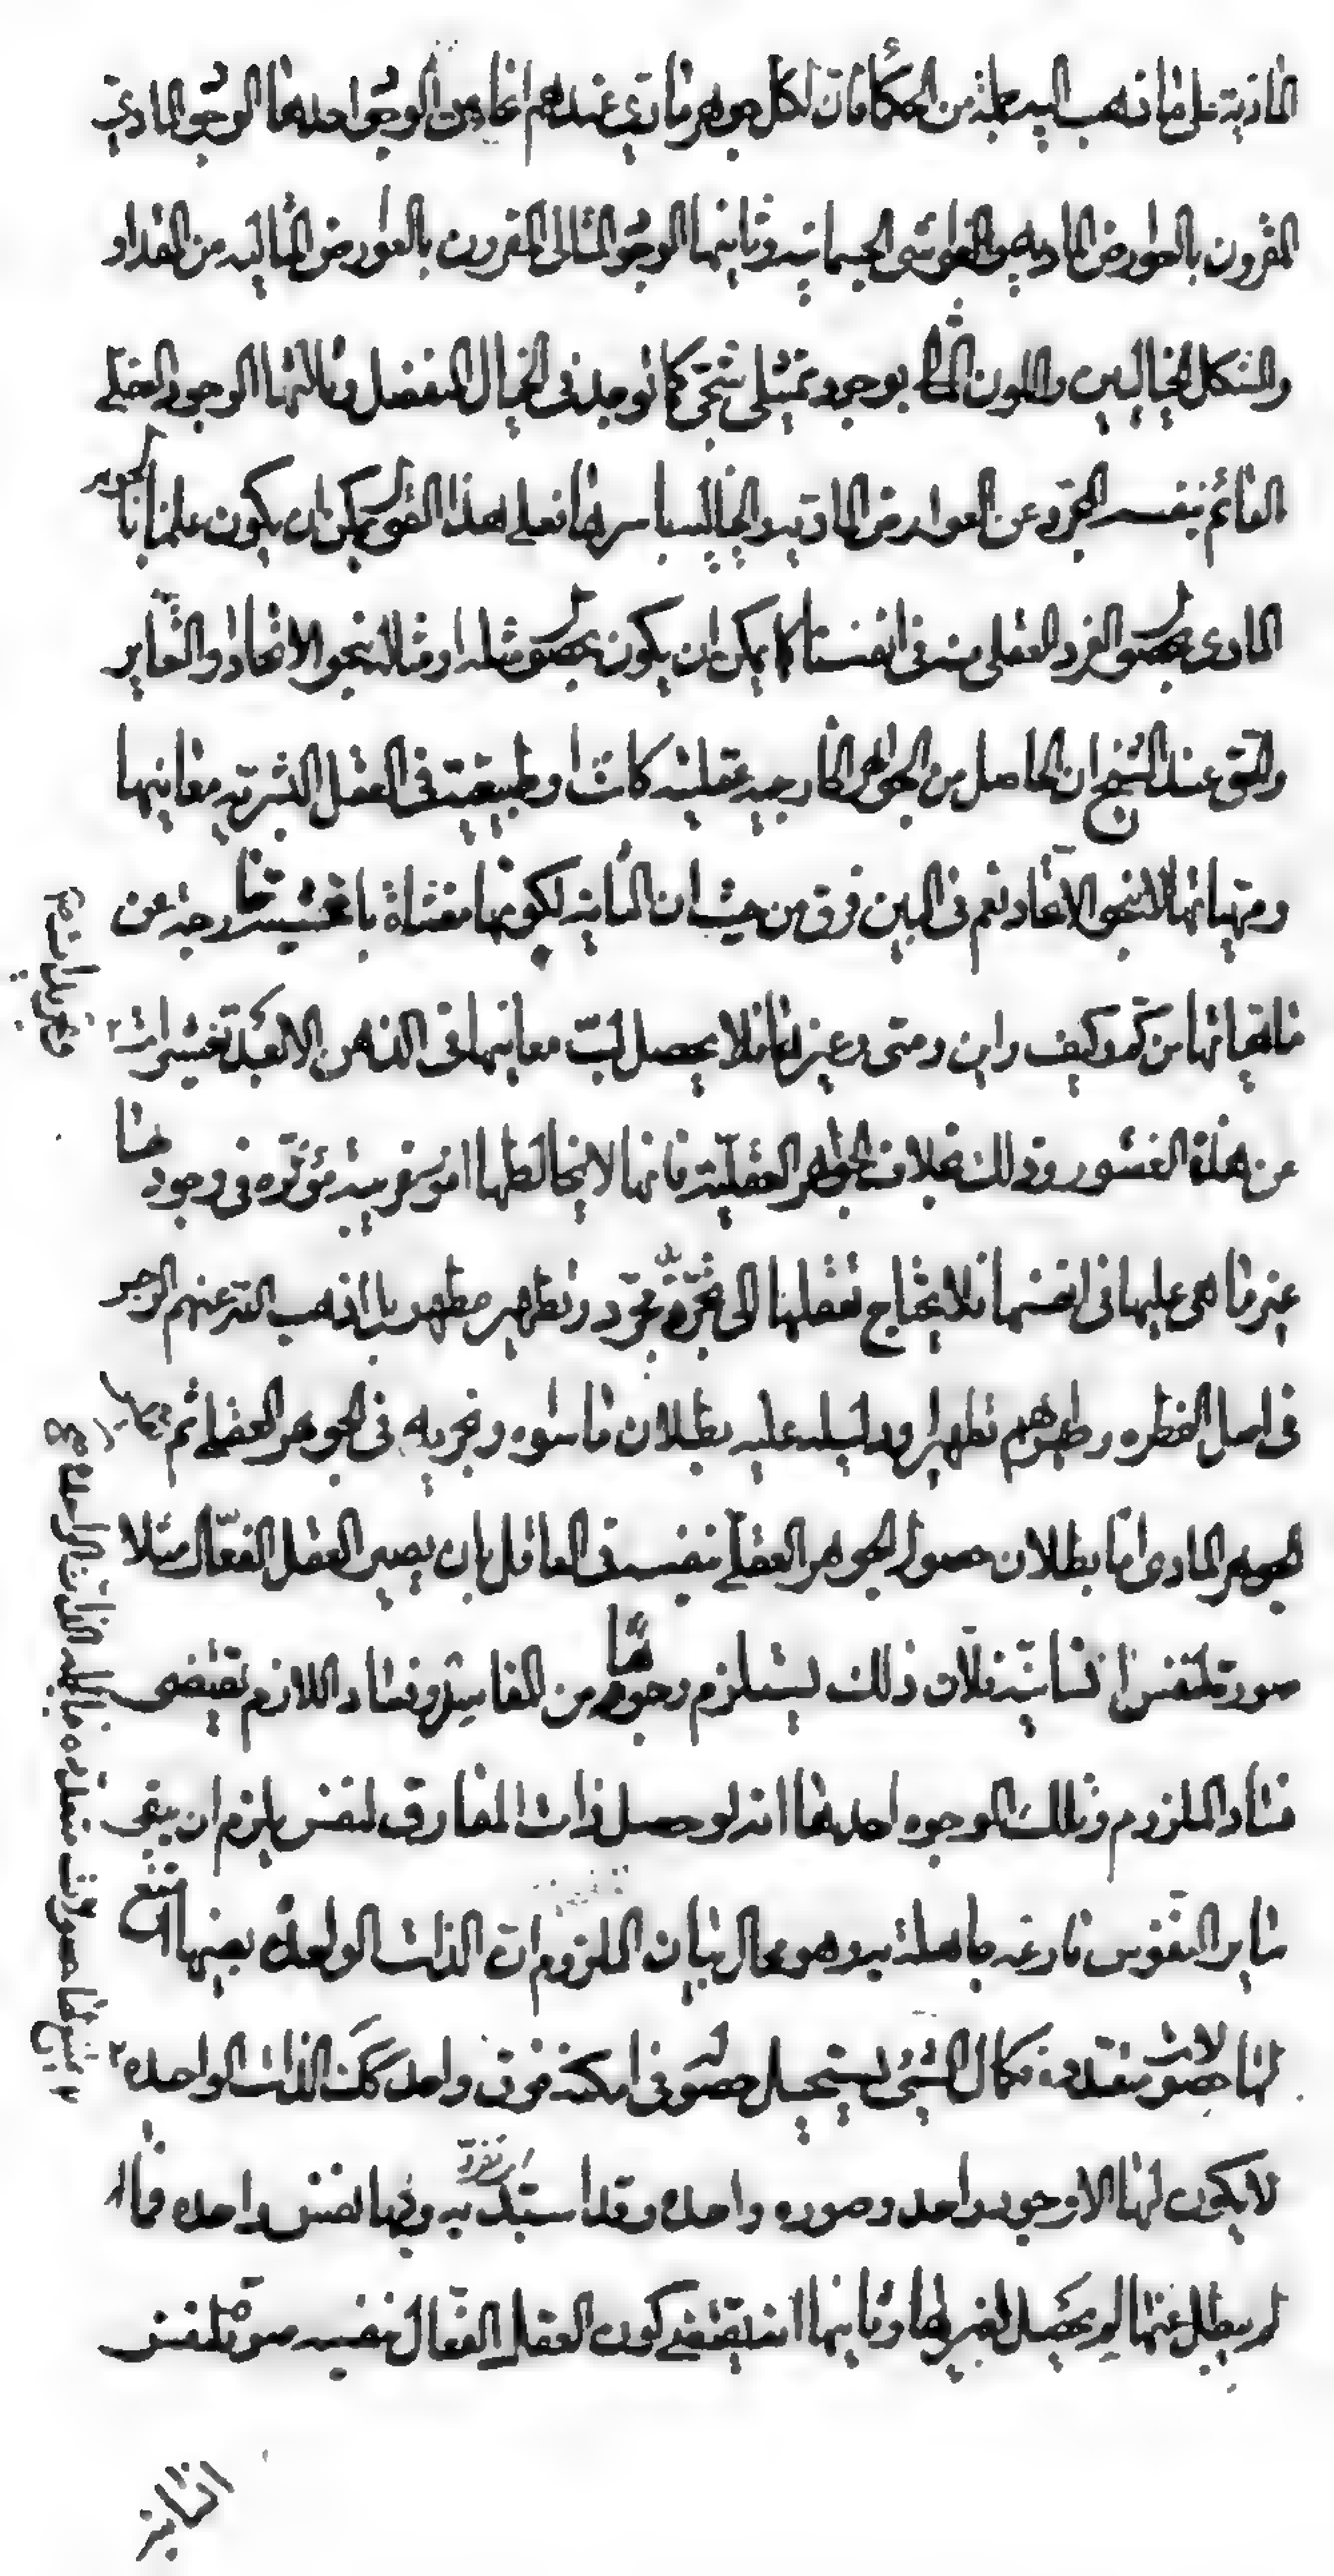 المادية على ما ذهب اليه جملة من الحكماء فان لكل جوهر مادي عندهم انحاء من الوجود احدها الوجود المادي
المقرون بالعوارض المادية والغواشي الجسمانية وثانيها الوجود المثالي المقرون بالعوارض المثالية من المقدار و
والشكل الخياليين واللون بوجود تمثيلي شبحي كما توجد في الخيال المنفصل وثالثها الوجود العقلي
القائم بنفسه المجرد عن العوارض المادية والخيالية باسرها فعلى هذا القول يمكن ان يكون علمنا بالجوهر
المادي بحصول الفرد العقلي منه في انفسنا كما يمكن ان يكون بحصول مثله او مثاله بنحو الاتحاد او التغاير
والحق عند الشيخ ان الحاصل من الجواهر الخارجية عقلية كانت او طبيعية في العقل البشرية معانيها
ومهياتها لا بنحو الاتحاد نعم في البين فرق من حيث ان الثانية لكونها مغشاة باغشية خارجة عن
مهياتها من كم وكيف واين ومتى وغيرها فلا يحصل لب معانيها في الذهن الا بعد تقشيرات
عن هذه القشور وذلك بخلاف الجواهر العقلية فانها لا يخالطها امور غريبة مؤثره في وجودها
غير ما هي عليها في انفسها فلا يحتاج تعقلها الى تجريد مجرد وتطهير مطهر بل اذهب الله عنهم الرجز
في اصل الفطره وطهرهم تطهيرا ودليله عليه بطلان ما سواه ونجريه في الجوهر العقلي ثم
الجوهر المادي اما بطلان حصول الجوهر العقلي بنفسه في العاقل بان يصير العقل الفعال مثلا
صورة لنفس انسانية فلان ذلك يستلزم وجوها من المفاسد وفساد اللازم يقتضي
فساد الملزوم وتلك الوجوه احدها انه لو حصل ذات المفارق لنفس يلزم ان يبقى
ساير النفوس فارغه جاهلة به وهو محال بيان الملزوم ان الذات الواحدة بعينها يمتنع
لها حصولات متعددة فكما ان الشيء يستحيل حصوله في امكنة فوق واحد كك الذات الواحده
لا يكون لها الا وجود واحد وصوره واحده وقد استبد به وبها نفس واحده فما
لم يبطل عنها لم يحصل لغيرها وثانيها انه يقتضي كون العقل الفعال بنفسه صورة لنفس